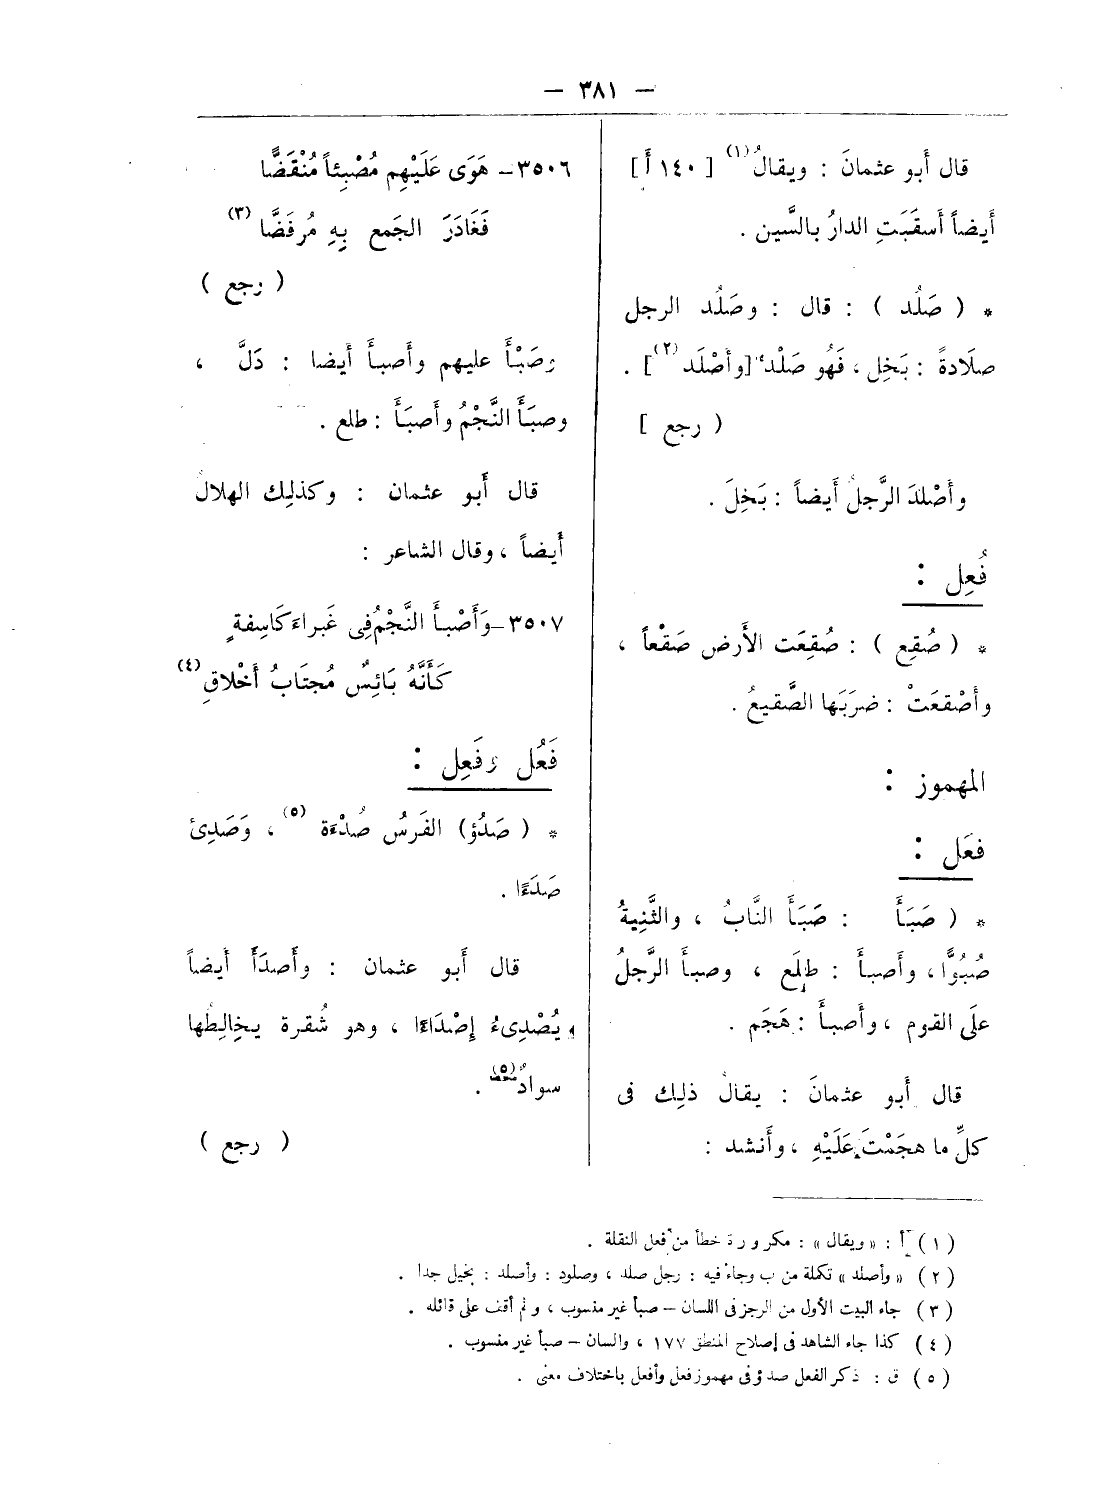 — ٣٨١ —
قال أَبو عثمانَ : ويقالُ (١) [ ١٤٠ أ ]
أَيضاً أَسقَبَتِ الدارُ بالسَّين .
* ( صَلُد ) : قال : وصَلُد الرجل
صلَادةً : بَخِل ، فَهُو صَلْد [وأَصْلَد (٢)] .
( رجع ]
وأَصْلدَ الرَّجلُ أَيضاً : بَخِلَ .
فُعِل :
* ( صُقِع ) : صُقِعَت الأَرض صَقْعاً ،
وأَصْقعَتْ : ضرَبَها الصَّقيعُ .
المهموز :
فعَل :
* ( صَبَأَ : صَبَأَ النَّابُ ، والثَّنِيةُ
صُبُوًّا ، وأَصبأَ : طلَع ، وصبأَ الرَّجلُ
علَى القوم ، وأَصبأَ : هَجَم .
قال أَبو عثمانَ : يقالُ ذلِك فى
كلِّ ما هجَمْتَ عَلَيْهِ ، وأَنشد :
٣٥٠٦ – هَوَى عَلَيْهِم مُصْبِئاً مُنْقَضَّا
فَغَادَرَ الجَمع بِهِ مُرفَضَّا (٣)
( رجع )
وصَبْأَ عليهم وأَصبأَ أيضا : دَلَّ ،
وصبَأَ النَّجْمُ وأَصبَأَ : طلع .
قال أَبو عثمان : وكذلِك الهلالُ
أَيضاً ، وقال الشاعر :
٣٥٠٧ – وَأَصْبأَ النَّجْمُ فِى غَبراءَ كَاسِفةٍ
كَأَنَّهُ بَائِسٌ مُجتَابُ أَخْلاقِ (٤)
فَعُل وفَعِل :
* ( صَدُؤ) الفَرسُ صُدْءَة (٥) ، وَصَدِئَ
صَدَءًا .
قال أَبو عثمان : وأَصدَأَ أَيضاً
يُصْدِىءُ إِصْدَاءًا ، وهو شُقرة يخالِطُها
سوادٌ (٥) .
( رجع )
(١) أ : « ويقال » : مكرورة خطأ من فعل النقلة .
(٢) « وأصلد » تكملة من ب وجاء فيه : رجل صلد ، وصلود : وأصلد : بخيل جدا .
(٣) جاء البيت الأول من الرجز فى اللسان – صبأ غير منسوب ، ولم أقف على قائله .
(٤) كذا جاء الشاهد فى إصلاح المنطق ١٧٧ ، والسان – صبأ غير منسوب .
(٥) ق : ذكر الفعل صدؤ فى مهموز فعل وأفعل باختلاف معنى .